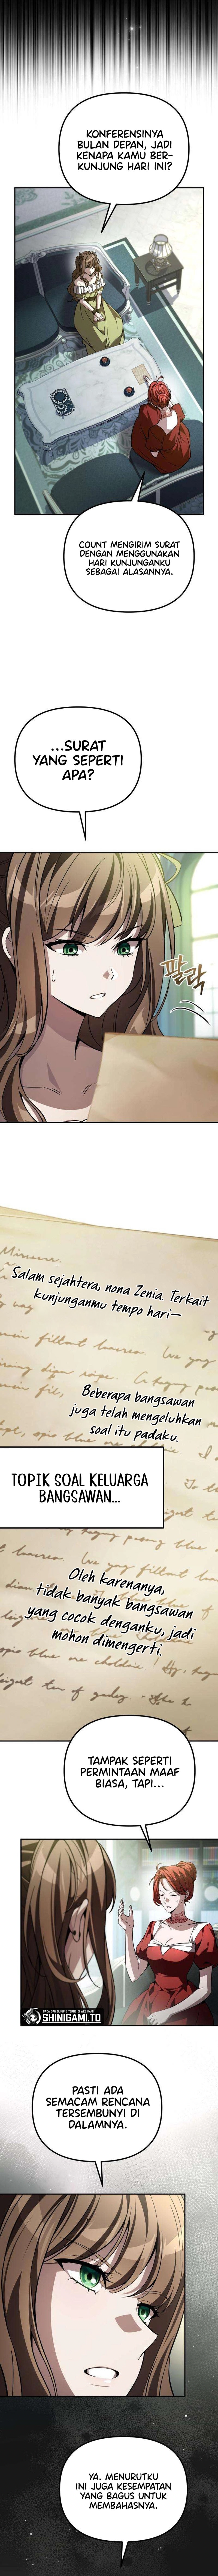 KONFERENSINYA
BULAN DEPAN, JADI
KENAPA KAMU BER-
KUNJUNG HARI INI?
COUNT MENGIRIM SURAT
DENGAN MENGGUNAKAN
HARI KUNJUNGANKU
SEBAGAI ALASANNYA.
...SURAT
YANG SEPERTI
APA?
팔락
Salam sejahtera, nona Zenia. Terkait
kunjunganmu tempo hari—
Beberapa bangsawan
juga telah mengeluhkan
soal itu padaku.
TOPIK SOAL KELUARGA
BANGSAWAN...
Oleh karenanya,
tidak banyak bangsawan
yang cocok denganku, jadi
mohon dimengerti.
TAMPAK SEPERTI
PERMINTAAN MAAF
BIASA, TAPI...
SHINIGAMI.TO
PASTI ADA
SEMACAM RENCANA
TERSEMBUNYI DI
DALAMNYA.
YA. MENURUTKU
INI JUGA KESEMPATAN
YANG BAGUS UNTUK
MEMBAHASNYA.